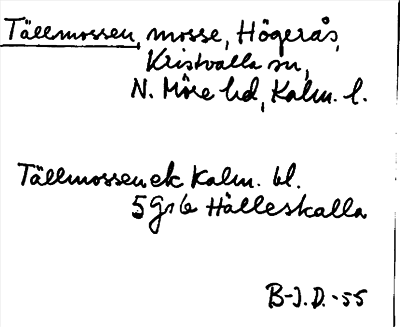 Tällmossen, mosse, Högerås,
Kristvalla sn,
N. Möre hd, Kalm. l.
Tällmossen ek Kalm. bl.
5G Hälleskalla
B-J.D.-55